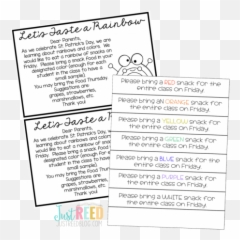 Let's Taste a Rainbow
Dear Parents,
As we celebrate St. Patrick's Day, we are
learning about rainbows and colors. We
would like to eat a rainbow snack on
Friday. Please bring a snack food in your
designated color (enough for each
student in the class to have a
small sample).
You may bring the food Thursday.
Suggestions are
grapes, strawberries,
marshmallows, etc.
Thank you!
Let's Taste a Rainbow
Dear Parents,
As we celebrate St. Patrick's Day, we are
learning about rainbows and colors. We
would like to eat a rainbow snack on
Friday. Please bring a snack food in your
designated color (enough for each
student in the class to have a
small sample).
You may bring the food Thursday.
Suggestions are
grapes, strawberries,
marshmallows, etc.
Thank you!
Please bring a RED snack for the
entire class on Friday!
Please bring an ORANGE snack for
the entire class on Friday!
Please bring a YELLOW snack for
the entire class on Friday!
Please bring a GREEN snack for
the entire class on Friday!
Please bring a BLUE snack for the
entire class on Friday!
Please bring a PURPLE snack for
the entire class on Friday!
Please bring a WHITE snack for
the entire class on Friday!
Just REED